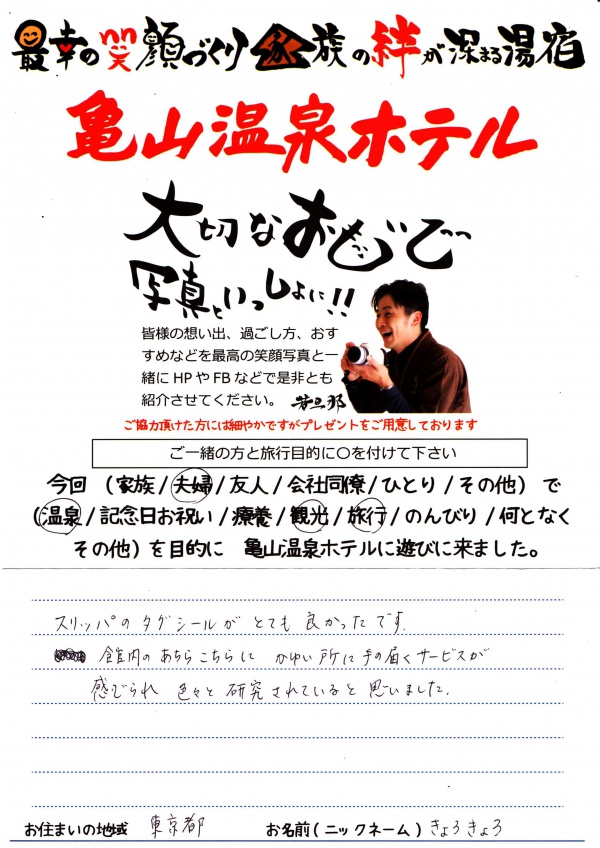 最幸の笑顔づくり 家族の絆が深まる湯宿
亀山温泉ホテル
大切なおもいで
写真といっしょに!!
皆様の想い出、過ごし方、おす
すめなどを最高の笑顔写真と一
緒にHPやFBなどで是非とも
紹介させてください。 若旦那
ご協力頂けた方には細やかですがプレゼントをご用意しております
ご一緒の方と旅行目的に〇を付けて下さい
今回 (家族/夫婦/友人/会社同僚/ひとり/その他) で
(温泉/記念日お祝い/療養/観光/旅行/のんびり/何となく
その他) を目的に 亀山温泉ホテルに遊びに来ました。
スリッパのタグシールが とても 良かったです.
館内のあちらこちらに かゆい所に手の届くサービスが
感じられ 色々と研究されていると思いました.
お住まいの地域 東京都 お名前(ニックネーム) きょろきょろ